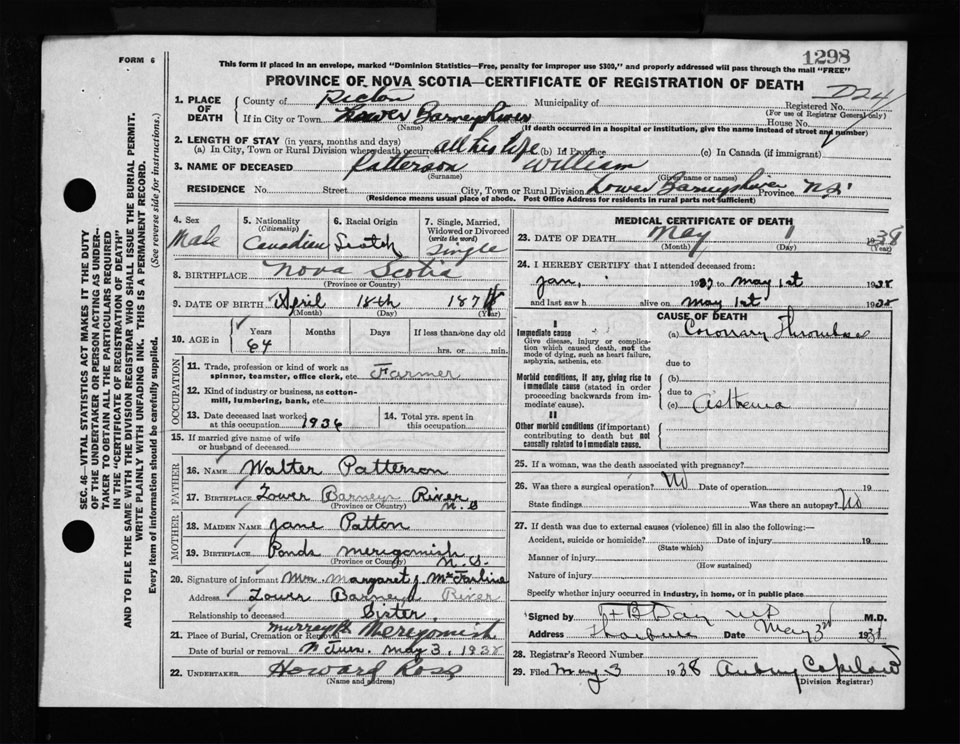 1298
FORM 6
This form if placed in an envelope, marked "Dominion Statistics—Free, penalty for improper use $300," and properly addressed will pass through the mail "FREE"
PROVINCE OF NOVA SCOTIA—CERTIFICATE OF REGISTRATION OF DEATH
SEC. 46—VITAL STATISTICS ACT MAKES IT THE DUTY
OF THE UNDERTAKER OR PERSON ACTING AS UNDER-
TAKER TO OBTAIN ALL THE PARTICULARS REQUIRED
IN THE "CERTIFICATE OF REGISTRATION OF DEATH"
AND TO FILE THE SAME WITH THE DIVISION REGISTRAR WHO SHALL ISSUE THE BURIAL PERMIT.
WRITE PLAINLY WITH UNFADING INK. THIS IS A PERMANENT RECORD.
Every item of information should be carefully supplied. (See reverse side for instructions.)
1. PLACE OF DEATH
County of Pictou Municipality of Registered No.
(For use of Registrar General only)
If in City or Town Lower Barneys River House No.
(Name) (If death occurred in a hospital or institution, give the name instead of street and number)
2. LENGTH OF STAY (in years, months and days)
(a) In City, Town or Rural Division where death occurred all his life (b) If Province (c) In Canada (if immigrant)
3. NAME OF DECEASED Patterson William
(Surname) (Given name or names)
RESIDENCE No. Street City, Town or Rural Division Lower Barneys River Province N.S.
(Residence means usual place of abode. Post Office Address for residents in rural parts not sufficient)
4. Sex Male
5. Nationality (Citizenship) Canadian
6. Racial Origin Scotch
7. Single, Married, Widowed or Divorced (write the word) Single
8. BIRTHPLACE Nova Scotia
(Province or Country)
9. DATE OF BIRTH April 18th 1874
(Month) (Day) (Year)
10. AGE in Years 64 Months Days If less than one day old
hrs. or min.
OCCUPATION
11. Trade, profession or kind of work as
spinner, teamster, office clerk, etc. Farmer
12. Kind of industry or business, as cotton-
mill, lumbering, bank, etc.
13. Date deceased last worked
at this occupation 1936
14. Total yrs. spent in
this occupation
15. If married give name of wife
or husband of deceased
FATHER
16. NAME Walter Patterson
17. BIRTHPLACE Lower Barneys River N.S
(Province or Country)
MOTHER
18. MAIDEN NAME Jane Patton
19. BIRTHPLACE Ponds Merigomish N.S.
(Province or Country)
20. Signature of informant Mrs Margaret J. McFarline
Address Lower Barneys River
Relationship to deceased Sister
21. Place of Burial, Cremation or Removal Merigomish
Date of burial or removal May 3, 1938
22. UNDERTAKER Howard Ross
(Name and address)
MEDICAL CERTIFICATE OF DEATH
23. DATE OF DEATH May 1 1938
(Month) (Day) (Year)
24. I HEREBY CERTIFY that I attended deceased from:
Jan, 1937 to May 1st 1938
and last saw h alive on May 1st 1938
CAUSE OF DEATH
I
Immediate cause
Give disease, injury or complica-
tion which caused death, not the
mode of dying, such as heart failure,
asphyxia, asthenia, etc.
(a) Coronary Thrombosis
due to
Morbid conditions, if any, giving rise to
immediate cause (stated in order
proceeding backwards from im-
mediate cause).
(b)
due to
(c) Asthenia
II
Other morbid conditions (if important)
contributing to death but not
causally related to immediate cause.
25. If a woman, was the death associated with pregnancy?
26. Was there a surgical operation? No Date of operation 19
State findings Was there an autopsy? No
27. If death was due to external causes (violence) fill in also the following:—
Accident, suicide or homicide? Date of injury 19
(State which)
Manner of injury
(How sustained)
Nature of injury
Specify whether injury occurred in industry, in home, or in public place
Signed by Day MD M.D.
Address Thorburn Date May 3rd 1938
28. Registrar's Record Number
29. Filed May 3 1938 Aubrey Copeland
(Division Registrar)